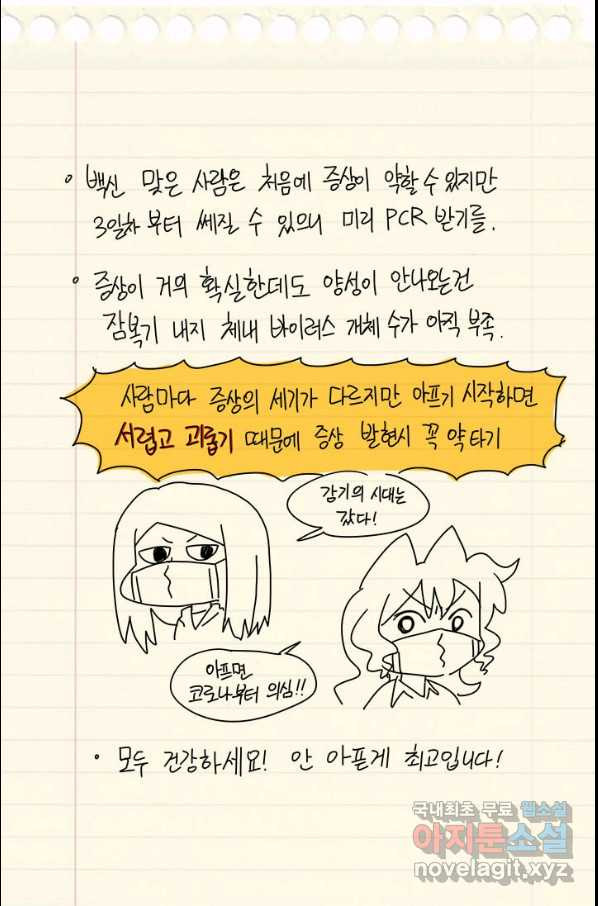 • 백신 맞은 사람은 처음에 증상이 약할 수 있지만
3일차부터 쎄질 수 있으니 미리 PCR 받기를.
• 증상이 거의 확실한데도 양성이 안나오는건
잠복기 내지 체내 바이러스 개체 수가 아직 부족.
사람마다 증상의 세기가 다르지만 아프기 시작하면
서럽고 괴롭기 때문에 증상 발현시 꼭 약 타기
감기의 시대는
갔다!
아프면
코로나부터 의심!!
• 모두 건강하세요! 안 아픈게 최고입니다!
국내최초 무료 웹소설
아지툰소설
novelagit.xyz